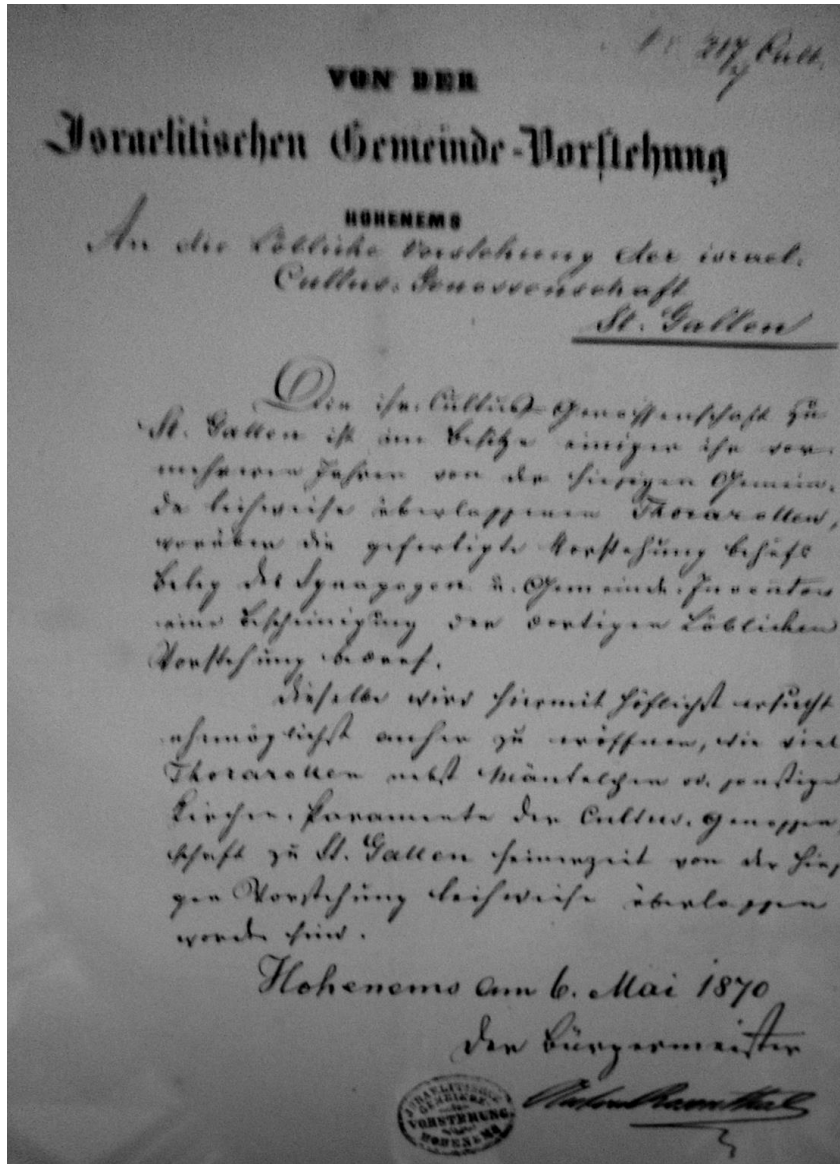 217 Cult.
VON DER
Israelitischen Gemeinde-Vorstehung
HOHENEMS
An die Löbliche Vorstehung der israel.
Cultus-Genossenschaft
St. Gallen
Die isr. Cultus-Genossenschaft zu
St. Gallen ist im Besitze einiger ihr vor
mehreren Jahren von der hiesigen Gemein-
de leihweise überlassenen Thorarollen,
worüber die gefertigte Vorstehung behufs
Beleg des Synagogen u. Gemeinde-Inventars
eine Bescheinigung der dortigen Löblichen
Vorstehung bedarf.
Dieselbe wird hiermit höflichst ersucht
ehemöglichst anher zu eröffnen, wie viel
Thorarollen nebst Mäntelchen od. sonstige
Kirchen-Paramente der Cultus-Genossen-
schaft zu St. Gallen seinerzeit von der hies-
gen Vorstehung leihweise überlassen
worden sind.
Hohenems am 6. Mai 1870
Der Bürgermeister
ISRAELITISCHE
GEMEINDE-
VORSTEHUNG
HOHENEMS
Anton Rosenthal